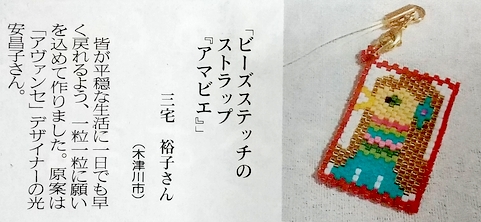 「ビーズステッチの
ストラップ
『アマビエ』」
三宅 裕子さん
（木津川市）
皆が平穏な生活に一日でも早
く戻れるよう、一粒一粒に願い
を込めて作りました。原案は
「アヴァンセ」デザイナーの光
安昌子さん。